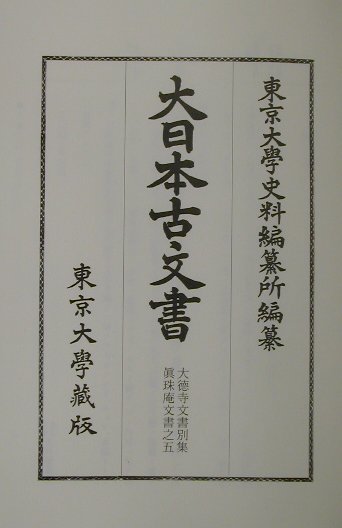 東京大學史料編纂所編纂
大日本古文書
大德寺文書別集
眞珠庵文書之五
東京大學藏版